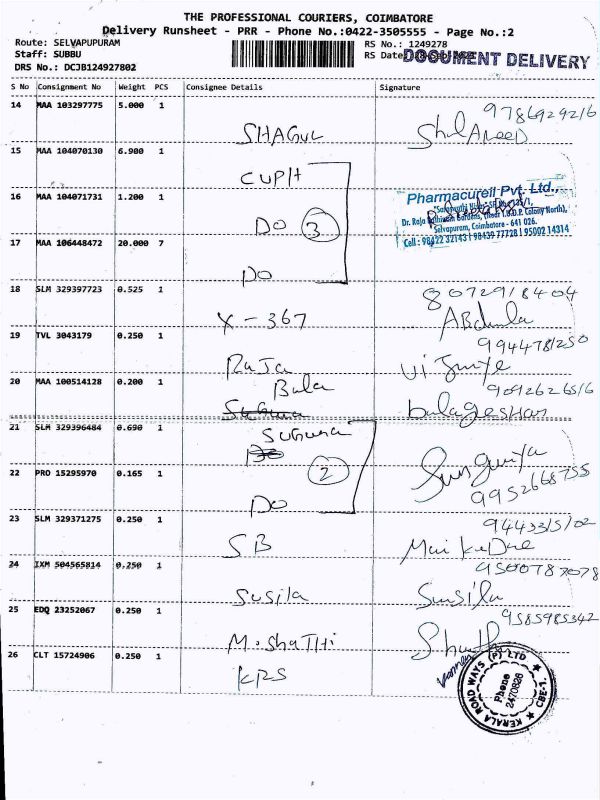 THE PROFESSIONAL COURIERS, COIMBATORE
Delivery Runsheet - PRR - Phone No.:0422-3505555 - Page No.:2
Route: SELVAPUPURAM
RS No.: 1249278
Staff: SUBBU
RS Date
DOCUMENT DELIVERY
DRS No.: DCJB124927802
S No Consignment No Weight PCS Consignee Details Signature
14 MAA 103297775 5.000 1
9786929216
SHAGUL
15 MAA 104070130 6.900 1
CUPH
16 MAA 104071731 1.200 1
DO 3
Pharmacureil Pvt. Ltd.,
Selvapuram, Coimbatore - 641 026.
Cell : 98422 32143 | 98439 77728 | 95002 14314
17 MAA 106448472 20.000 7
DO
18 SLM 329397723 0.525 1
8072918404
X - 367 ABdula
19 TVL 3043179 0.250 1
9944781250
RaJa
20 MAA 100514128 0.200 1
Bala
9092626516
balageshan
21 SLM 329396484 0.690 1
Suguna
2
22 PRO 15295970 0.165 1
DO
9952668755
23 SLM 329371275 0.250 1
SB
24 IXM 504565814 0.250 1
9500787078
Susila Susila
25 EDQ 23252067 0.250 1
9585985342
M. ShaTHi
26 CLT 15724906 0.250 1
KRS
KERALA ROAD WAYS (P) LTD
CBE-1
Phone
2470826